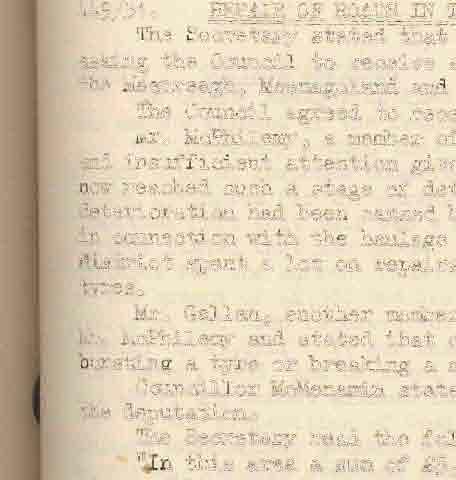 149/51. REPAIR OF ROADS IN
The Secretary stated that
asking the Council to receive
the Meenreagh, and
The Council agreed to
Mr. McPhilemy, a member of
and insufficient attention
now reached such a stage of
deterioration had been caused
in connection with the haulage
district spent a lot on repairs
tyres.
Mr. Gallen, another member
Mr. McPhilemy and stated that
bursting a tyre or breaking a
Councillor McMenamin
the deputation.
The Secretary read the
"In this area a sum of